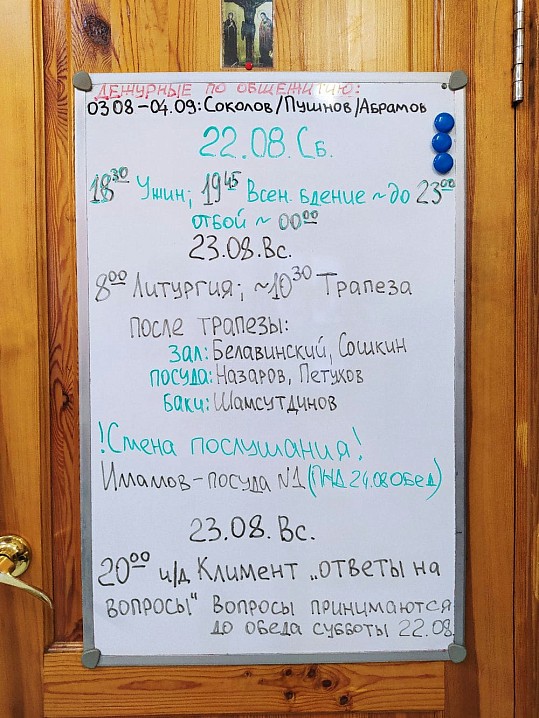 ДЕЖУРНЫЕ ПО ОБЩЕЖИТИЮ:
03 08 – 04.09: Соколов/Пушнов/Абрамов
22.08. Сб.
18³⁰ Ужин; 19⁴⁵ Всен. бдение ~ до 23⁰⁰
отбой ~ 00⁰⁰
23.08. Вс.
8⁰⁰ Литургия; ~10³⁰ Трапеза
После трапезы:
зал: Белавинский, Сошкин
посуда: Назаров, Петухов
баки: Шамсутдинов
!Смена послушания!
Имамов – посуда №1 (ПНД 24.08 Обед)
23.08. Вс.
20⁰⁰ и/д Климент „ответы на
вопросы“ Вопросы принимаются
до обеда субботы 22.08.